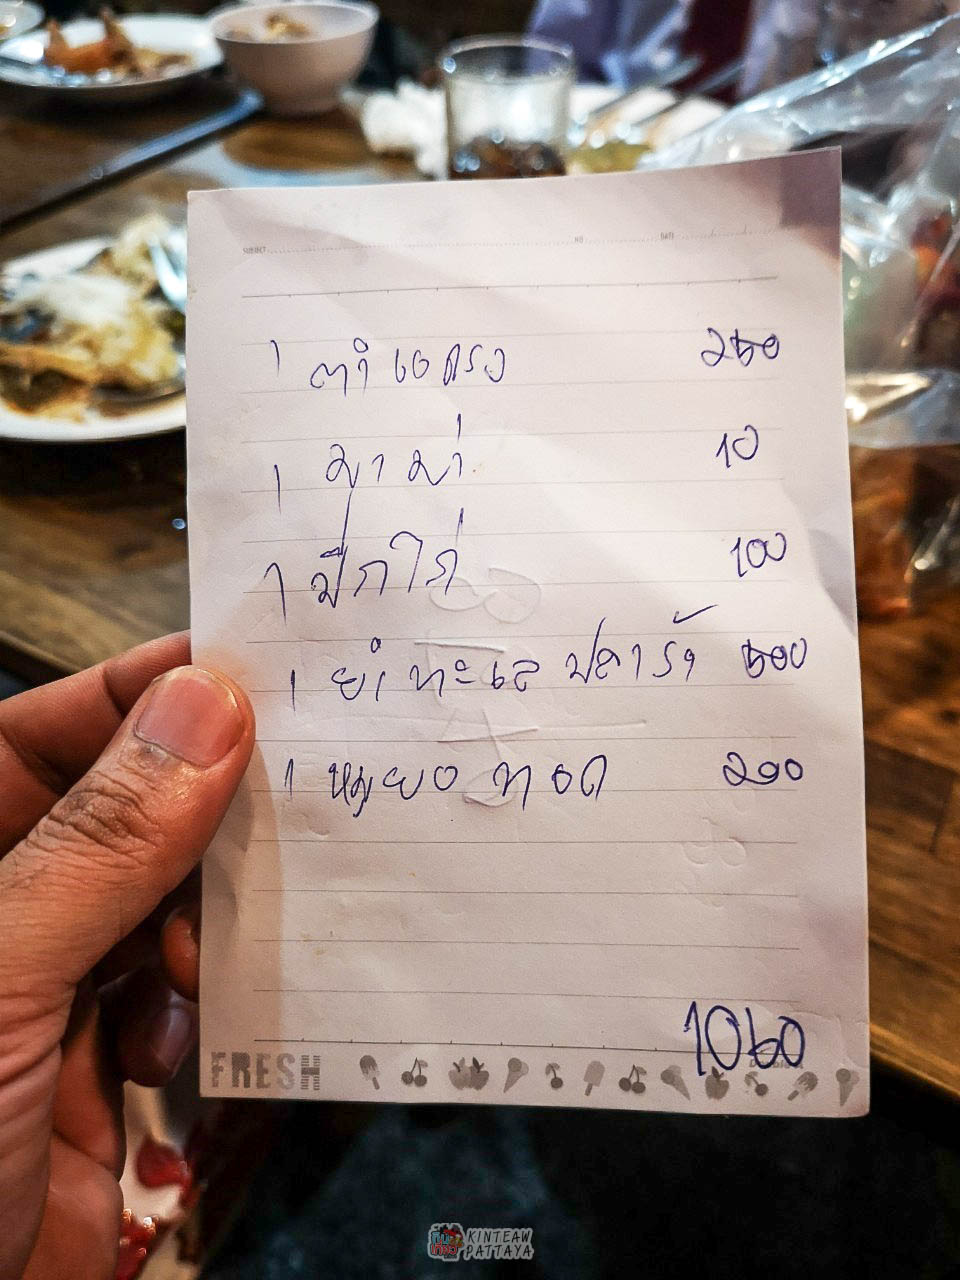 SUBJECT NO DATE
1 ตำ 250
1 มาม่า 10
1 ปีกไก่ 100
1 ยำทะเลปลาร้า 500
1 หมูยอ ทอด 200
1060
FRESH
KINTEAW
PATTAYA